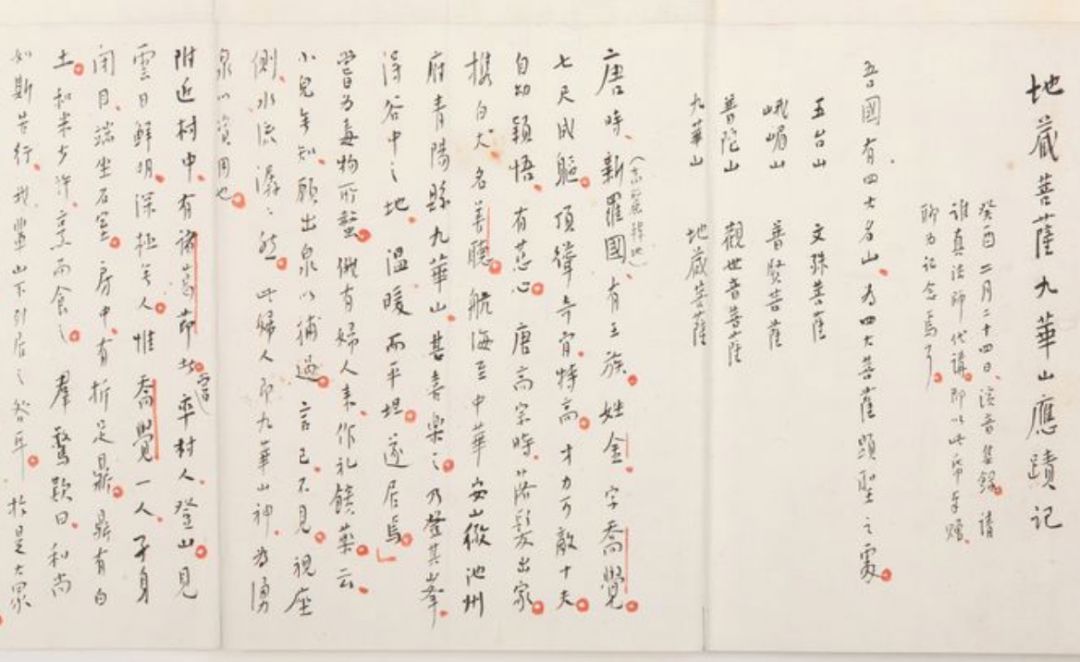 地藏菩薩九華山應蹟記
癸酉二月二十四日、演音集錄。請
誰真法師代講。即以此帋奉贈。
聊為記念焉耳。
吾國有四大名山、為四大菩薩顯聖之處。
五台山 文殊菩薩
峨嵋山 普賢菩薩
普陀山 觀世音菩薩
九華山 地藏菩薩
唐時、新羅國、有王族。姓金、字喬覺。
七尺成軀。頂聳奇骨。特高才力可敵十夫。
自幼穎悟。有慈心。唐高宗時。落髮出家。
攜白犬、名善聽。航海至中華 安山縱池州
府青陽縣九華山。甚喜樂之。乃登其峯、
得谷中之地、溫暖而平坦。遂居焉。
嘗為毒物所螫。俄有婦人来作礼饋藥。云、
小兒無知、願出泉以補過。言已、不見。視座
側、水流潺〻然。此婦人即九華山神、為湧
泉以資用也。
附近村中、有諸葛節者。率村人、登山。見
雲日鮮明、深極無人。惟喬覺一人、孑身
閉目、端坐石室。房中有折足鼎。鼎有白
土和米少許、烹而食之。羣驚歎曰、和尚
如斯苦行、我輩山下列居之咎耳。於是大眾